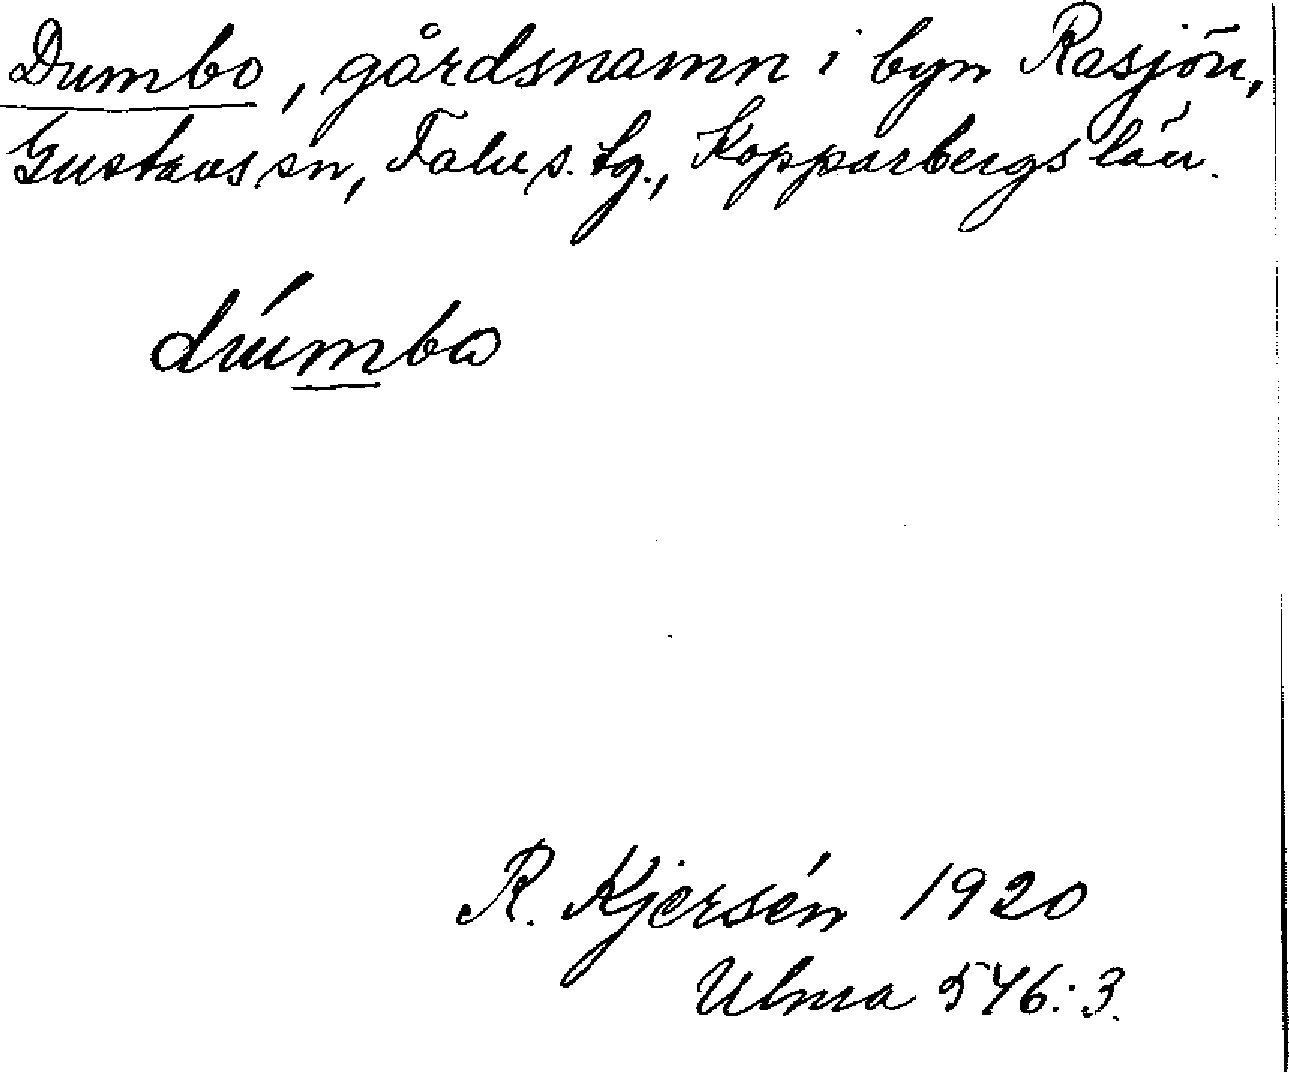 Dumbo, gårdsnamn i byn Rasjön,
Gustavs sn, Falu s. tg., Kopparbergs län.
dúmbω
R. Kjersén 1920
Ulma 546:3.